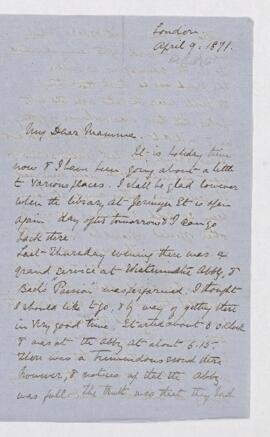 London
April 9, 1871.
My Dear Mamma.
It is holiday time
now & I have been going about a little
to various places. I shall be glad however
when the library at is open
again day after tomorrow & I can go
back there.
Last Thursday evening there was a
grand service at Westminster Abby, &
Bach's Passion was performed. I thought
I should like to go, & by way of getting there
in very good time. Started about 5 o'clock
& was at the abby at about 5.15.
There was a tremendous crowd there
however, & notices up that the Abby
was full. The truth was that they had